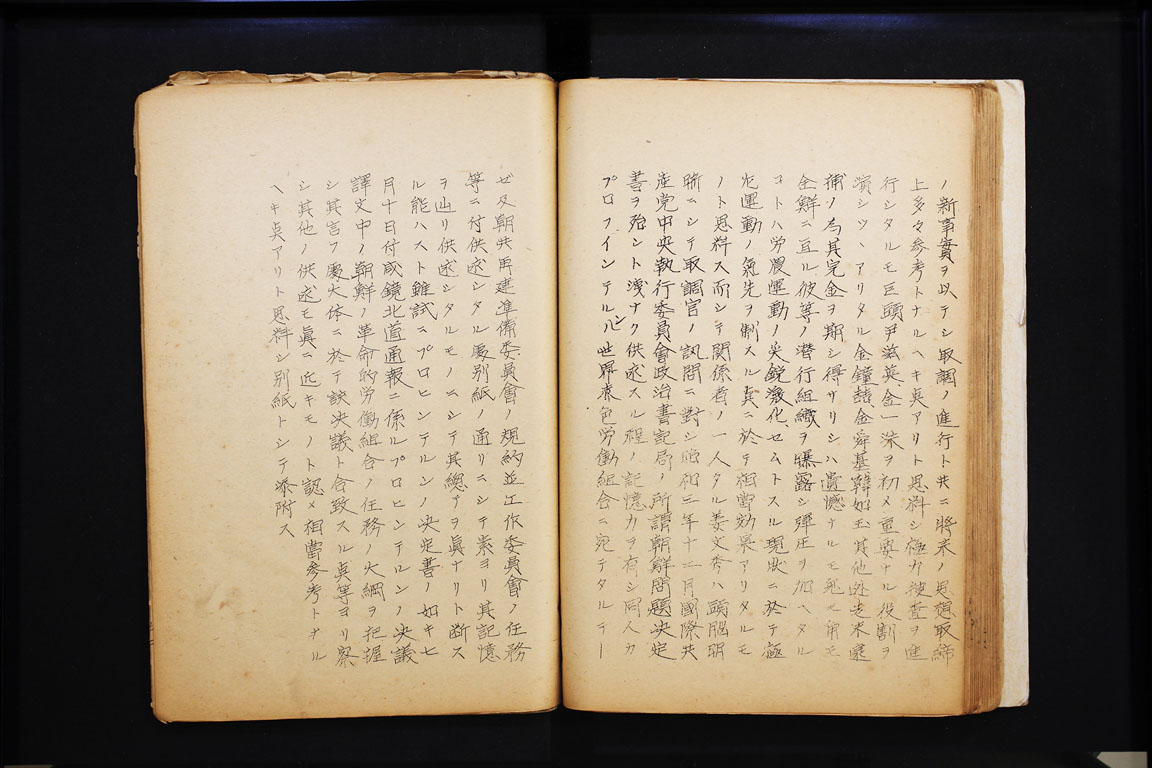 ノ新事實ヲ以テシ取調ノ進行ト共ニ將来ノ思想取締
上多々参考トナルヘキ点アリト思料シ極力捜査ヲ進
行シタルモ巨頭尹滋英、金一洙ヲ初メ重要ナル役割ヲ
演シツヽアリタル金鐘喆、金舜基、韓如玉其他外老未逮
捕ノ為其完全ヲ期シ得サリシハ遺憾ナルモ兎モ角モ
全鮮ニ亘ル彼等ノ潜行組織ヲ曝露シ彈圧ヲ加ヘタル
コトハ労農運動ノ尖鋭激化セムトスル現状ニ於テ極
左運動ノ氣先ヲ制スル点ニ於テ相當効果アリタルモ
ノト思料ス而シテ関係者ノ一人タル姜文秀ハ頭脳明
晰ニシテ取調官ノ訊問ニ對シ昭和三年十二月國際共
産党中央執行委員會政治書記局ノ所謂朝鮮問題決定
書ヲ殆ント残ナク供述スル程ノ記憶力ヲ有シ同人カ
プロフインテルン世界赤色労働組合ニ宛テタルテー
ゼ及朝共再建準備委員會ノ規約並工作委員會ノ任務
等ニ付供述シタル處別紙ノ通リニシテ素ヨリ其記憶
ヲ辿リ供述シタルモノニシテ其總テヲ眞ナリト断ス
ル能ハスト雖試ニプロヒンテルンノ決定書ノ如キ七
月十日付咸鏡北道通報ニ係ルプロヒンテルンノ決議
譯文中ノ朝鮮ノ革命的労働組合ノ任務ノ大綱ヲ把握
シ其言フ處大体ニ於テ該決議ト合致スル点等ヨリ察
シ其他ノ供述モ眞ニ近キモノト認メ相當参考トナル
ヘキ点アリト思料シ別紙トシテ添附ス